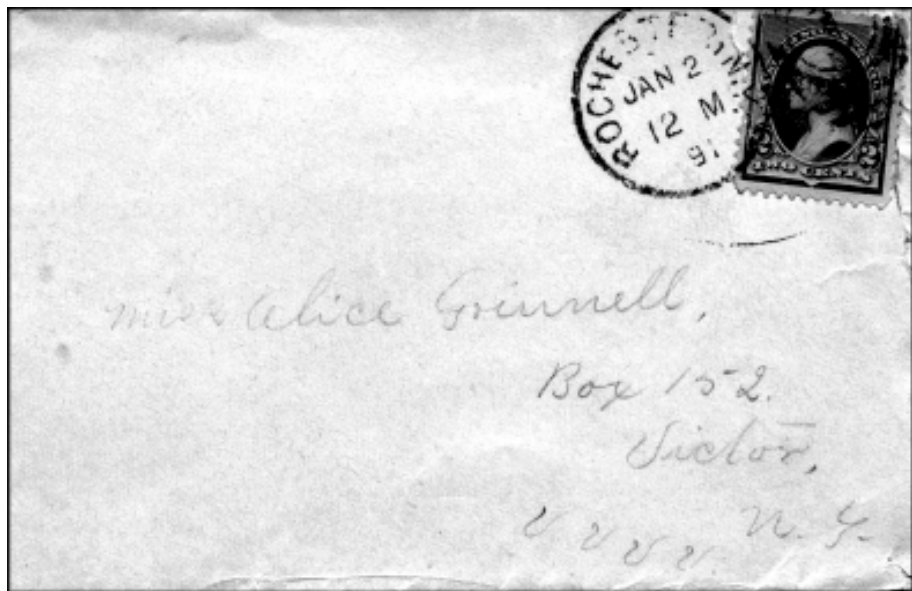 ROCHESTER, N.Y.
JAN 2
12 M
91
TWO CENTS
2 2
Miss Alice Grinnell,
Box 152.
Victor,
N. Y.